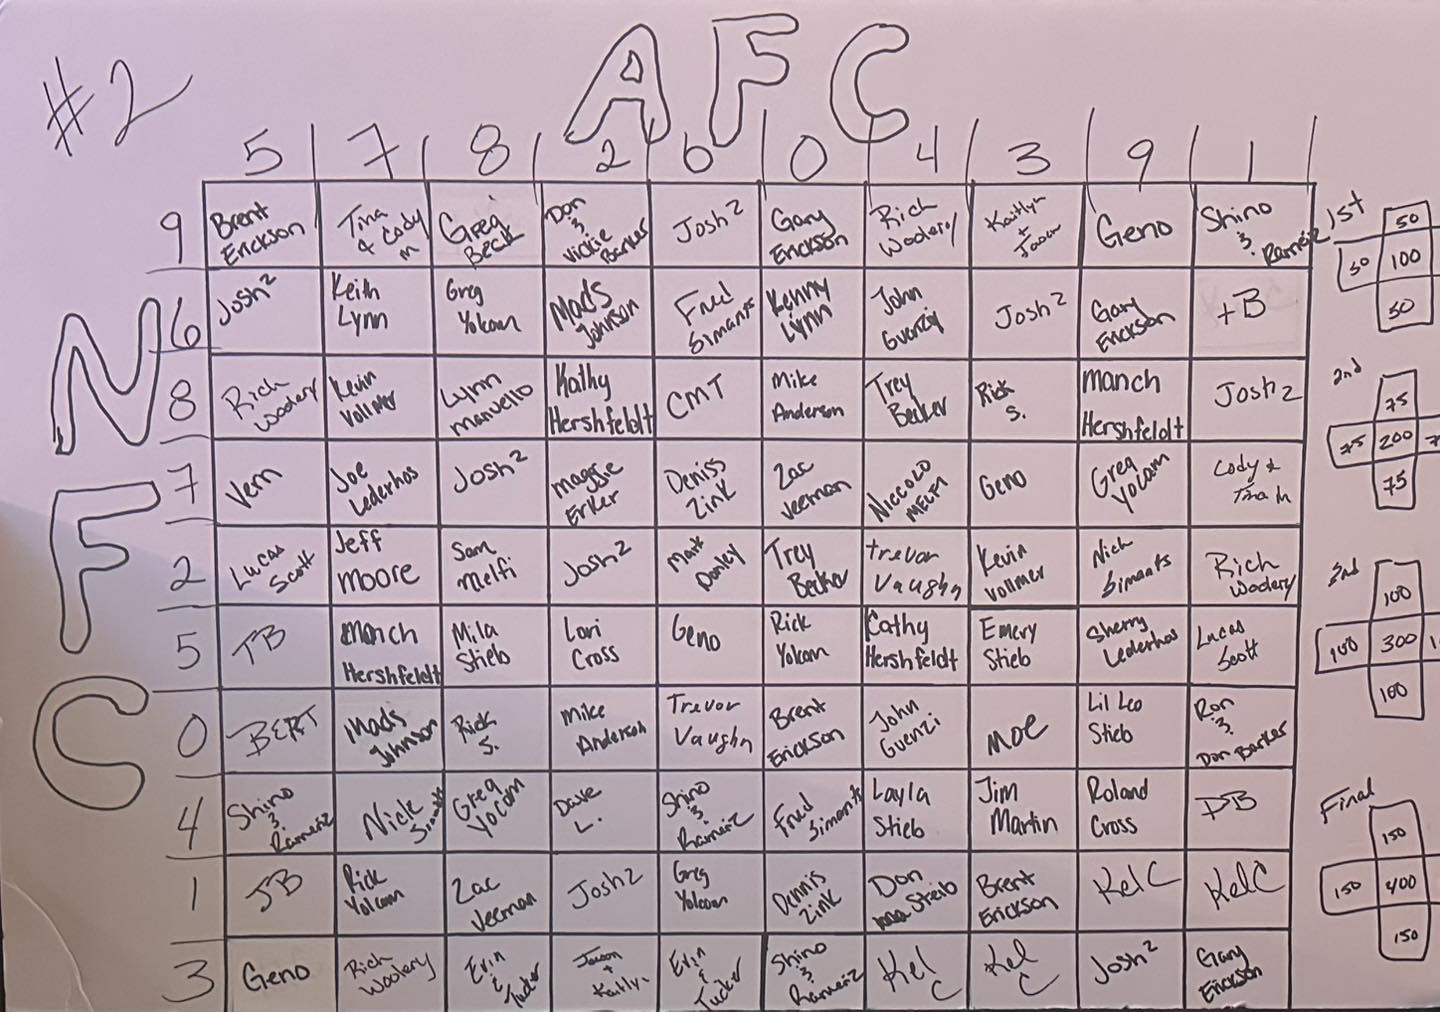 #2
AFC
5 7 8 2 6 0 4 3 9 1
NFC
9
Brent Erickson
Tina & Cody M
Greg Beck
Don & Vickie Barker
Josh2
Gary Erickson
Rich Woolery
Kaitlyn + Jason
Geno
Shino & Rameriz
6
Josh2
Keith Lynn
Greg Yolcom
Mads Johnson
Fred Simants
Kenny Lynn
John Guenzi
Josh2
Gary Erickson
+B
8
Rich Woolery
Kevin Vollmer
Lynn Manuello
Kathy Hershfeldt
CMT
Mike Anderson
Trey Becker
Rick S.
Manch Hershfeldt
Josh2
7
Vern
Joe Lederhos
Josh2
Maggie Erker
Deniss Zink
Zac Veeman
Niccolo Melfi
Geno
Greg Yocam
Cody & Tina M
2
Lucas Scott
Jeff Moore
Sam Melfi
Josh2
Mark Donley
Trey Becker
Trevor Vaughn
Kevin Vollmer
Nick Simants
Rich Woolery
5
TB
Manch Hershfeldt
Mila Stieb
Lori Cross
Geno
Rick Yolcom
Kathy Hershfeldt
Emery Stieb
Sherry Lederhos
Lucas Scott
0
BERT
Mads Johnson
Rick S.
Mike Anderson
Trevor Vaughn
Brent Erickson
John Guenzi
Moe
Lil Leo Stieb
Ron & Don Barker
4
Shino & Rameriz
Nick Simants
Greg Yocam
Dave L.
Shino & Rameriz
Fred Simants
Layla Stieb
Jim Martin
Roland Cross
DB
1
JB
Rick Yolcom
Zac Veeman
Josh2
Greg Yolcom
Dennis Zink
Don Stieb
Brent Erickson
Kel C
Kel C
3
Geno
Rich Woolery
Erin & Tucker
Jason + Kaitlyn
Erin & Tucker
Shino & Rameriz
Kel C
Kel C
Josh2
Gary Erickson
1st
50
50 100
50
2nd
75
75 200
75
3rd
100
100 300
100
Final
150
150 400
150